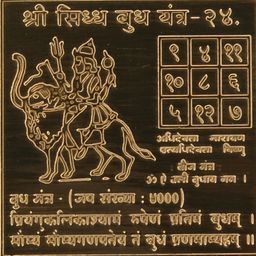 श्री सिध्ध बुध यंत्र - २४.
९ ४ ११
१० ८ ६
५ १२ ७
अधिदेवता नारायण
प्रत्यधिदेवता विष्णु
बीज मंत्र
ॐ ऐं स्त्रीं बुधाय नमः ।
बुध मंत्र - (जप संख्या : ४०००)
प्रियंगुकलिकाश्यामं रूपेणा प्रतिमं बुधम् ।
सौम्यं सौम्यगणापतेयं तं बुधं प्रणमाम्यहम् ॥